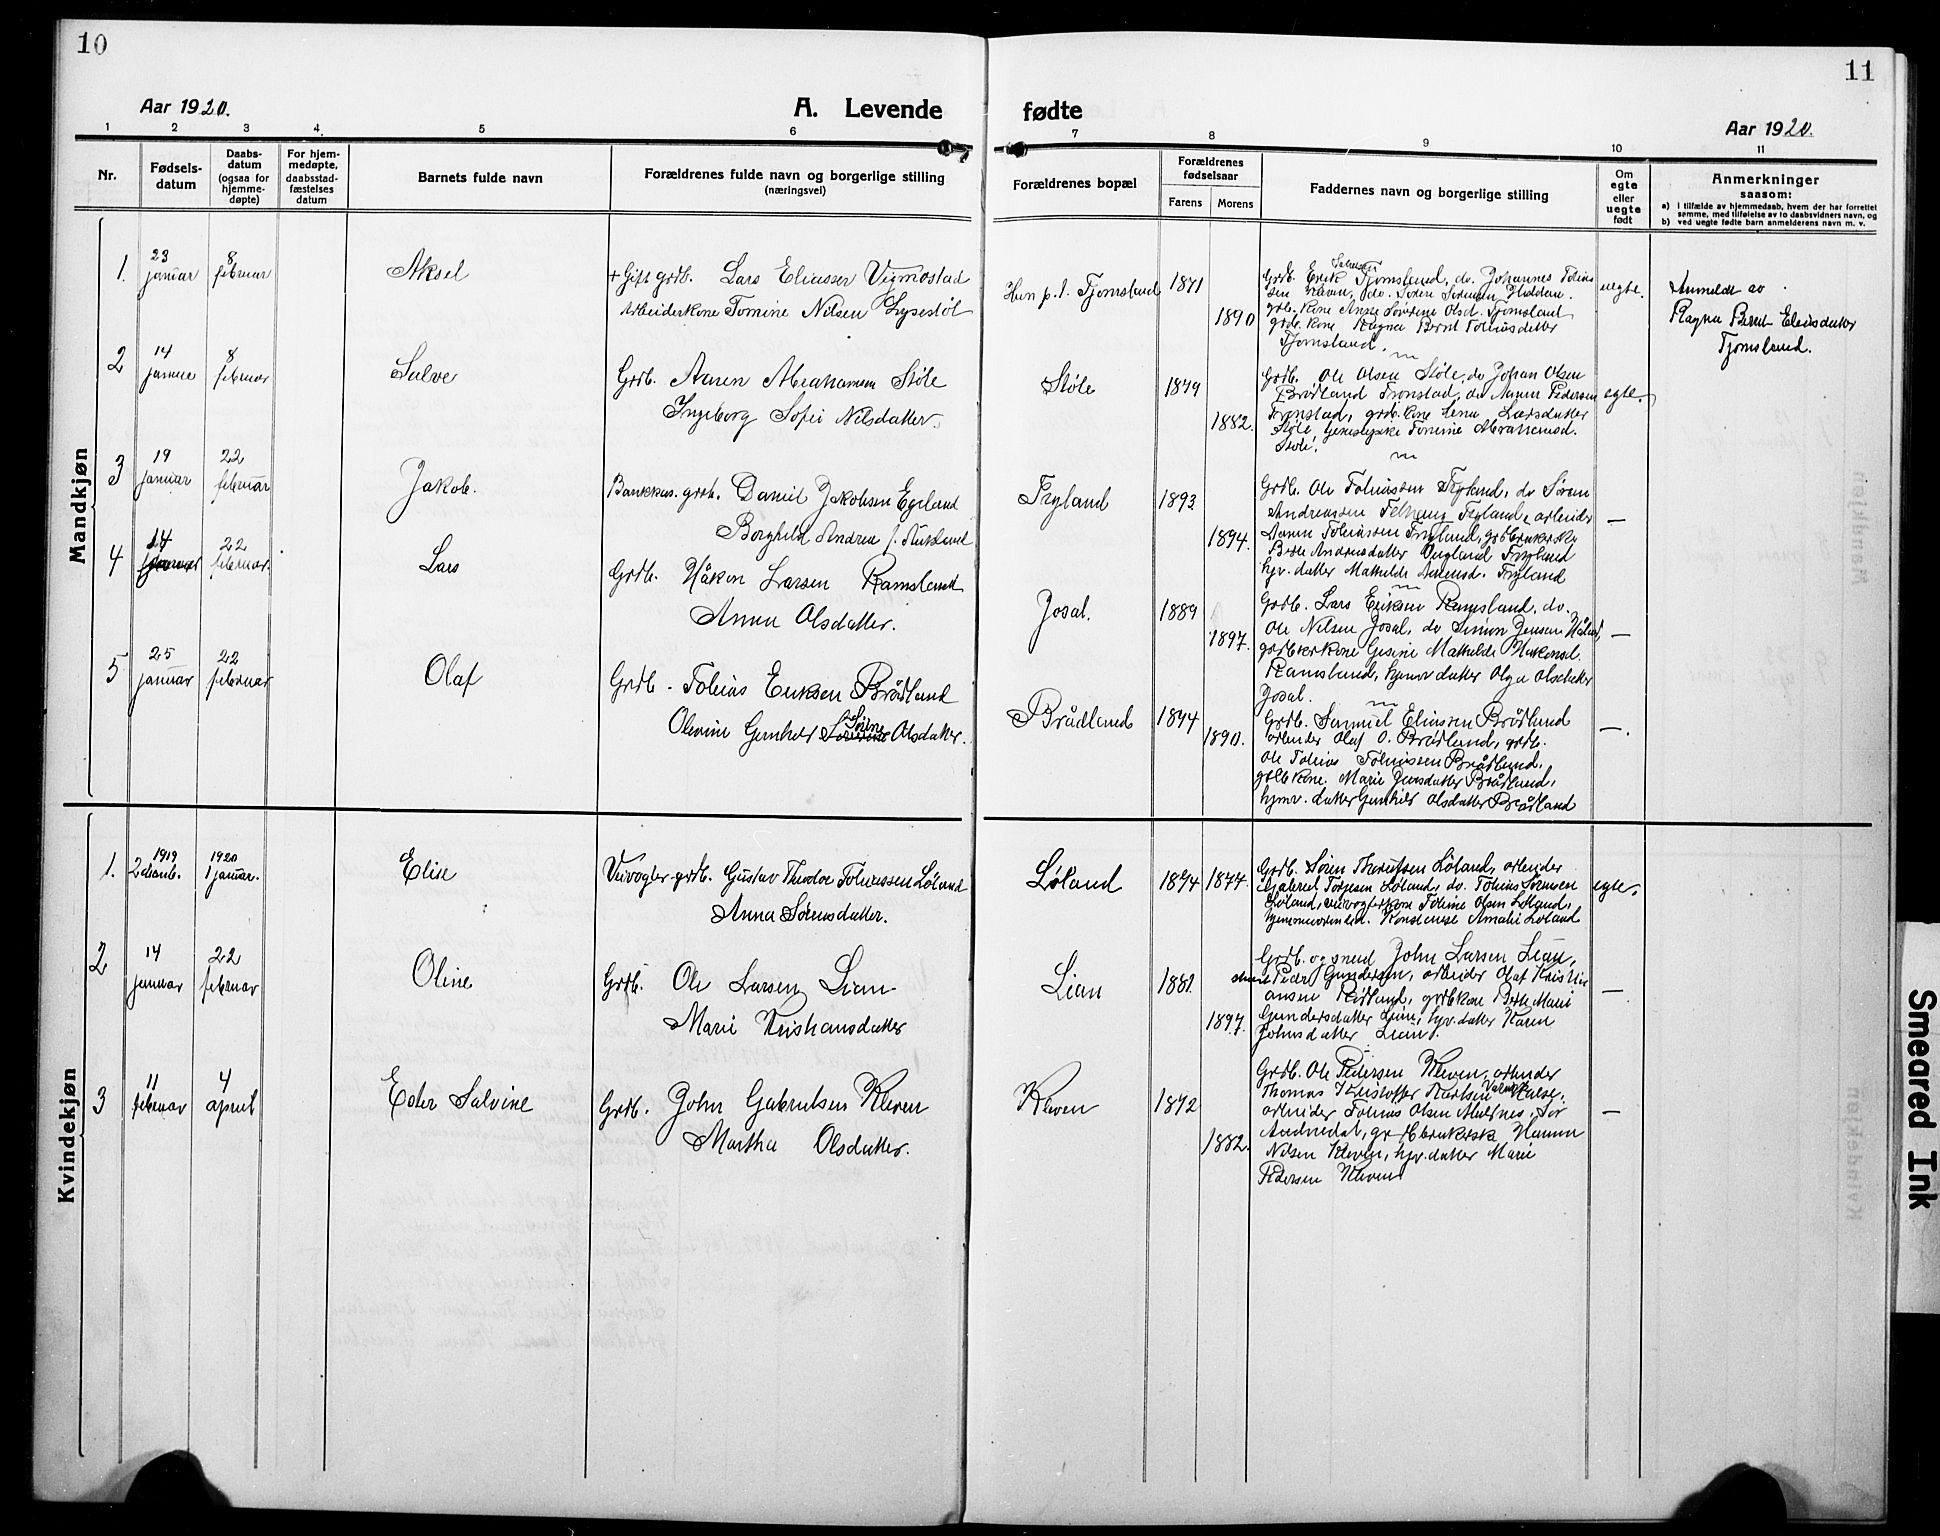 10
Aar 1920.
A. Levende
1 2 3 4 5 6
Nr.
Fødsels-
datum
Daabs-
datum
(ogsaa for
hjemme-
døpte)
For hjem-
medøpte,
daabsstad-
fæstelses
datum
Barnets fulde navn
Forældrenes fulde navn og borgerlige stilling
(næringsvei)
Mandkjøn
1. 23 januar 8 februar Aksel
+ Gift grdb. Lars Eliassen Vigmostad
Arbeiderkone Tomine Nilsen Lysestöl
2 14 8 februar Salve
Grdb. Aanen Abrahamsen Støle
Ingeborg Sofie Nilsdatter.
3 19 januar 22 februar Jakob.
grdb. Daniel Jakobsen Egeland
Borghild Andrea
4 22 februar. Lars
Grdb. Håkon Larsen Ramsland
Anna Olsdatter.
5 25 januar 22 februar Olaf
Grdb. Tobias Eriksen Brådland
Olevine Gunhild Sørine Olsdatter.
Kvindekjøn
1. 1919 2 decemb. 1920 1 januar. Elise
grdb. Gustav Theodor Tobiassen Løland
Anna Sørensdatter.
2 14 januar 22 februar Oline
Grdb. Ole Larsen Lian
Marie Kristiansdatter
3 11 februar 4 april Ester Salvine
Grdb. John Gabrielsen Kleven
Martha Olsdatter.
11
fødte
Aar 1920.
7 8 9 10 11
Forældrenes bopæl
Forældrenes
fødselsaar
Farens Morens
Faddernes navn og borgerlige stilling
Om
egte
eller
uegte
født
Anmerkninger
saasom:
a) I tilfælde av hjemmedaab, hvem der har forrettet
samme, med tilføielse av to daabsvidners navn, og
b) ved uegte fødte barn anmelderens navn m. v.
Hun p. t. Tjomsland 1871
1890
Grdb. Erik Salvesen Tjomsland, do. Johannes Tobias
sen Kleven, do. Sören Sörensen
grb. kone Anne Sovrine Olsd. Tjomsland
grdb. kone Ragna Bernt
Tjomsland.
uegte.
Anmeldt av
Ragna Bernt Eliasdatter
Tjomsland.
Støle 1879
1882.
Grdb. Ole Olsen Støle, do Johan Olsen
Brådland Tronstad, do Aanen Pedersen
Tronstad, grdb. kone Lena Larsdatter
Støle, Tomine Abrahamsd.
Støle.
egte.
Fryland 1893
1894.
Grdb. Ole Tobiassen Fryland, do Sören
Andreassen Fryland, arbeider
Aanen Tobiassen Fryland, grdbrukersk.
Berte Andreasdatter Fryland
hjv. datter Mathilde Fryland
—
Josal. 1889
1897.
Grdb. Lars Eriksen Ramsland, do.
Ole Nilsen Josal, do Simon Jensen
grdbrkone Gesine Mathilde Håkonsd.
Ramsland, hjmv datter Olga Olsdatter
Josal.
—
Brådland 1894
1890.
Grdb. Samuel Eliassen Brådland
arbeider Olaf O. Brådland, grdb.
Ole Tobias Tobiassen Brådland,
grdbkone. Marie Jensdatter Brådland,
hjmv. datter Gunhild Olsdatter Brådland
—.
Løland 1874 1877.
Grdb. Sören Løland, arbeider
Gabriel Torjesen Løland, do. Tobias Sörensen
Løland, veivogterkone Tobine Olsen Løland,
Konstanse Amalie Løland
egte.
Lian 1881.
1897.
Grdb. og smed John Larsen Lian,
Peder Gundersen, arbeider Olaf Kristi
ansen Rödland, grdbkone Berte Marie
Gundersdatter Lian, hjv. datter Karen
Johnsdatter Lian.
—
Kleven 1872
1882.
Grdb. Ole Pedersen Kleven, arbeider
Thomas Kristoffer
arbeider Tobias Olsen
Audnedal, grdbrukersk Hanna
Nilsen Kleven, hjv. datter Marie
Pedersen Kleven
—
Smeared Ink